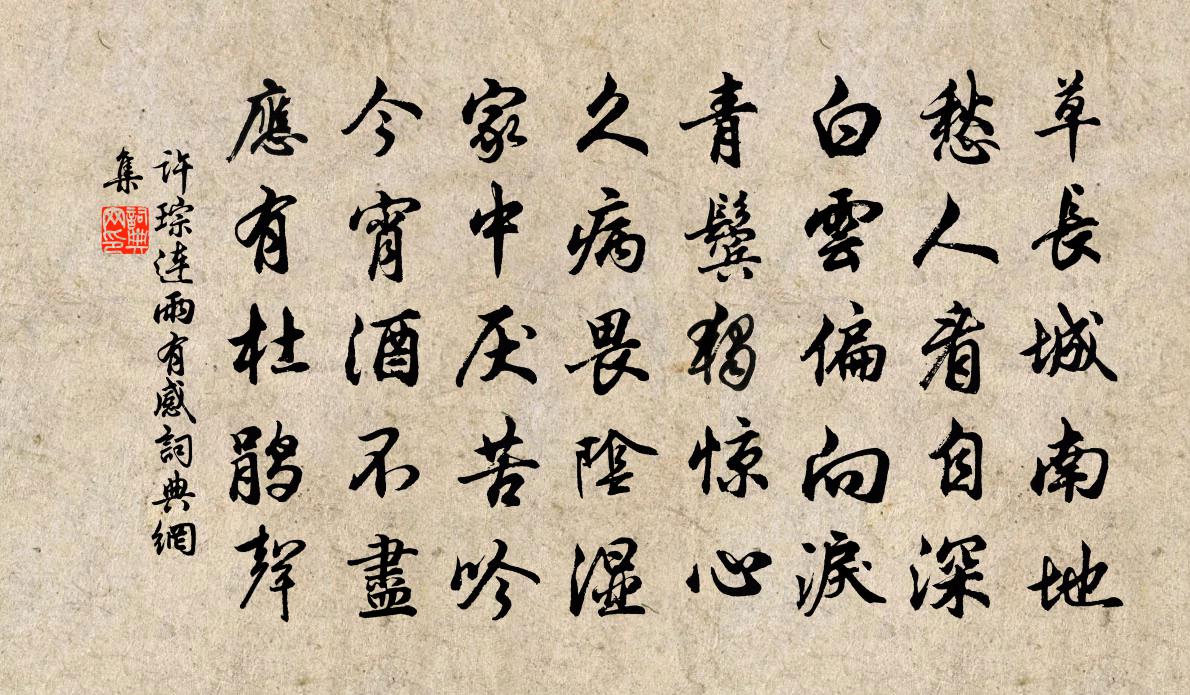 草長城南地
愁人看自深
白雲偏向淚
青鬢獨惊心
久病畏陰濕
家中厌苦吟
今宵酒不盡
應有杜鵑聲
許琮連雨有感詞典網
集
詞典
网印